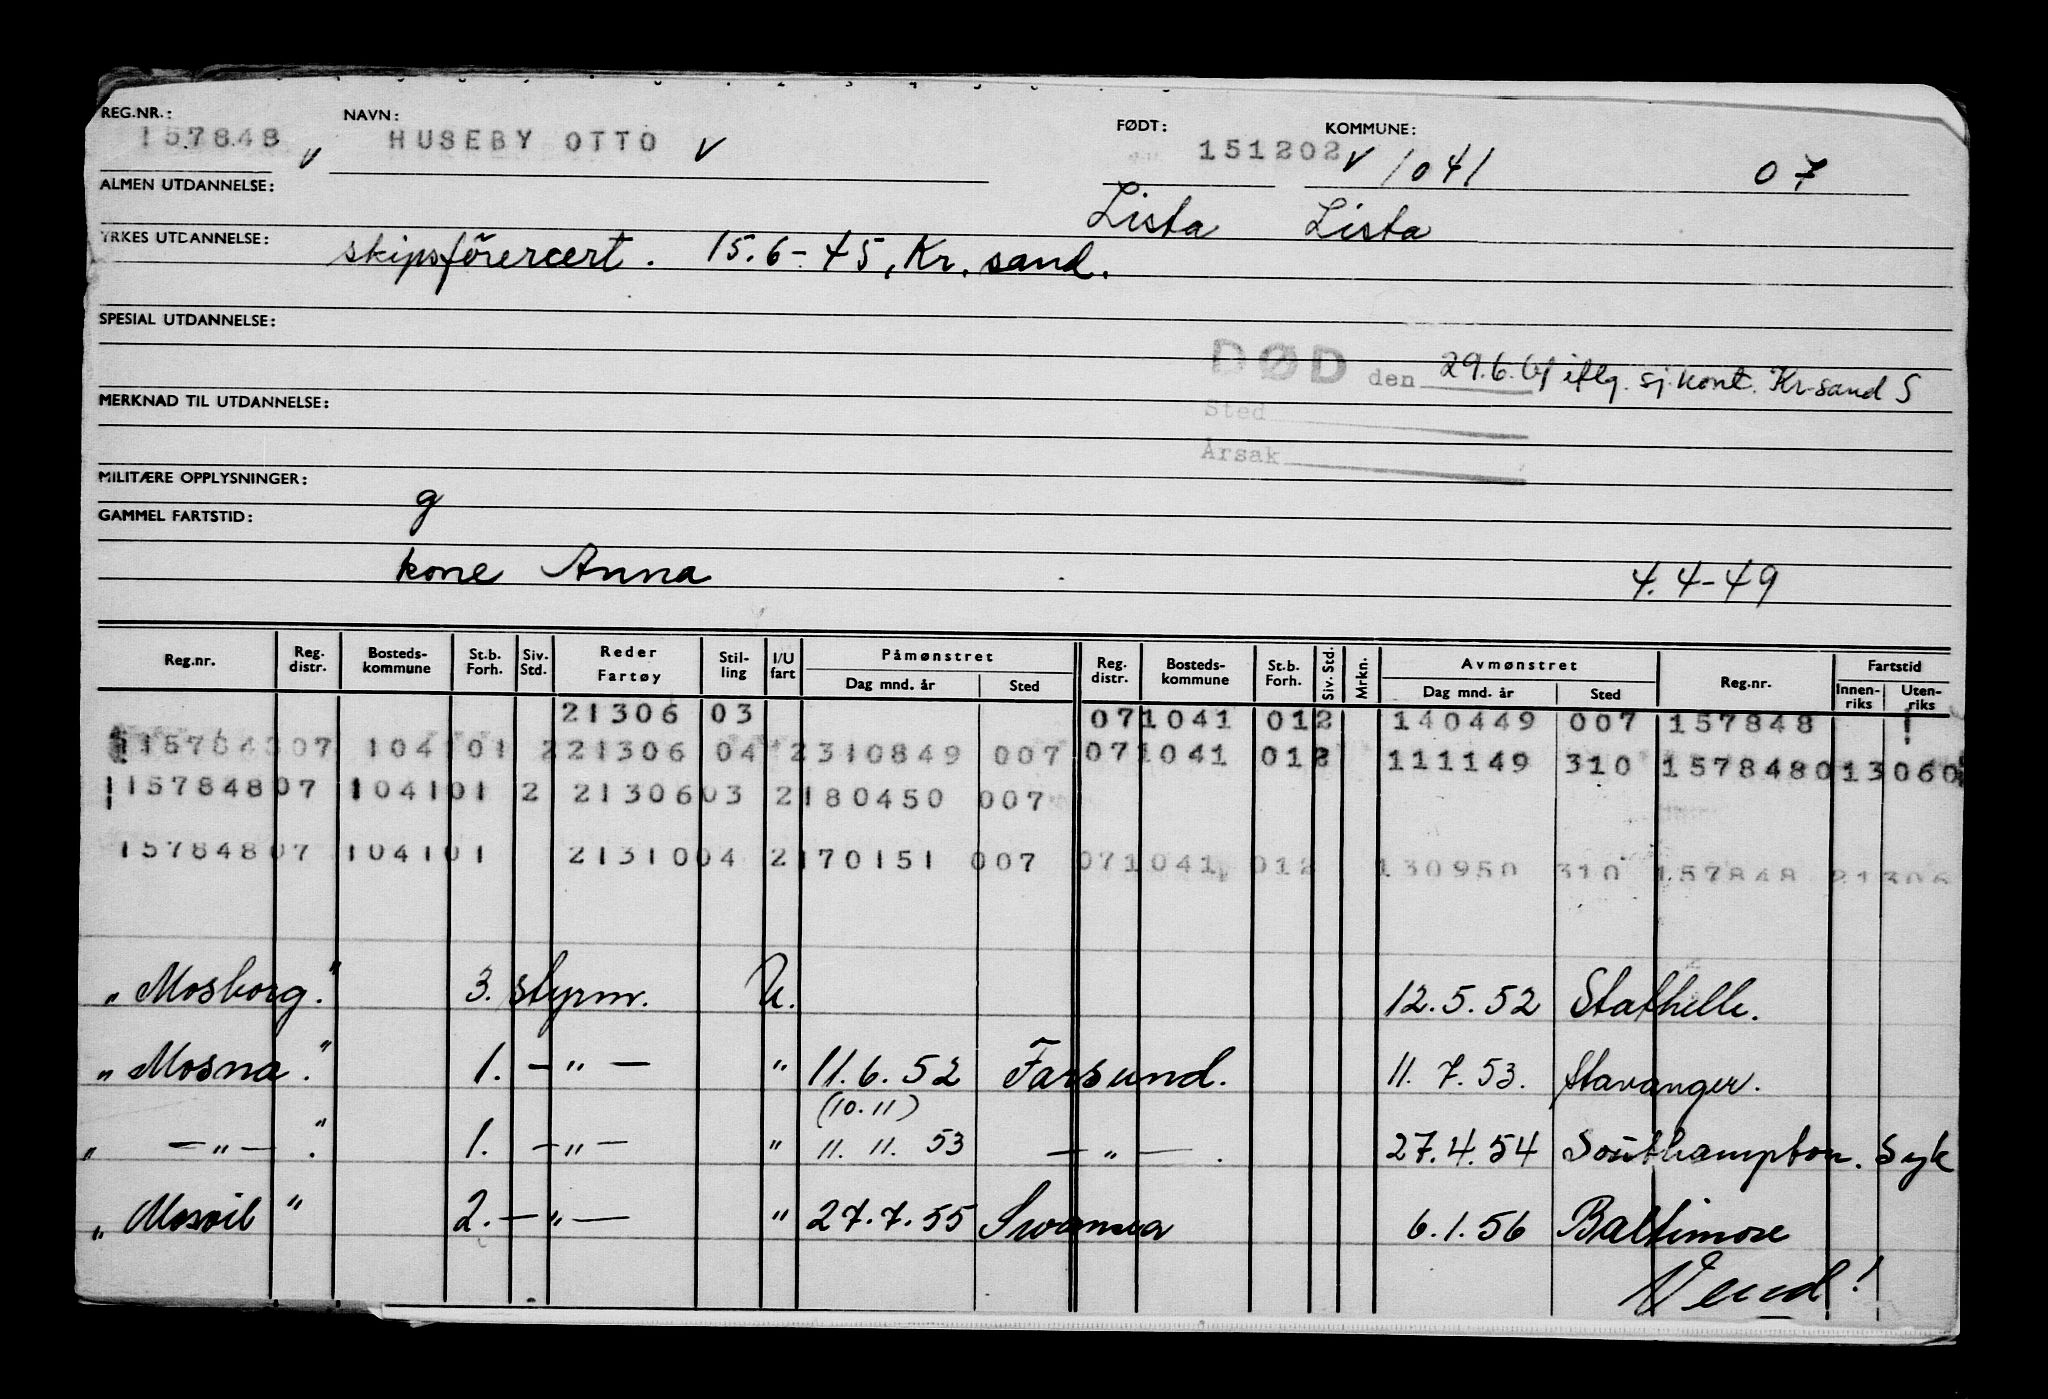 REG.NR.: NAVN: FØDT: KOMMUNE:
157848 v HUSEBY OTTO v 151202 v 1041 07
ALMEN UTDANNELSE: Lista Lista
YRKES UTDANNELSE: skipsförercert. 15.6-45, Kr.sand.
SPESIAL UTDANNELSE:
DØD den 29.6. iflg. sj.kont. Kr.sand S
MERKNAD TIL UTDANNELSE: Sted
Årsak
MILITÆRE OPPLYSNINGER: g
GAMMEL FARTSTID:
kone Anna 4.4-49
Reg.nr. Reg. distr. Bosteds-kommune St.b. Forh. Siv. Std. Reder Fartøy Stil-ling I/U fart Påmønstret Dag mnd. år Sted Reg. distr. Bosteds-kommune St.b. Forh. Siv. Std. Mrkn. Avmønstret Dag mnd. år Sted Reg.nr. Fartstid Innen-riks Uten-riks
21306 03 071041 012 140449 007 157848
15784807 104101 2 21306 04 2310849 007 071041 012 111149 310 157848013060
15784807 104101 2 2130603 2180450 007
15784807 104101 2131004 2170151 007 071041 012 130950 310 157848 21306
„Mosborg." 3. styrm. U. 12.5.52 Stathelle.
„Mosna." 1. -"- " 11.6.52 Farsund. 11.7.53. Stavanger.
(10.11)
„ -"- ." 1. -"- " 11.11.53 -"- . 27.4.54 Southampton. Syk
„Mosvil" 2. -"- " 27.7.55 Swansea 6.1.56 Baltimore
Vend!